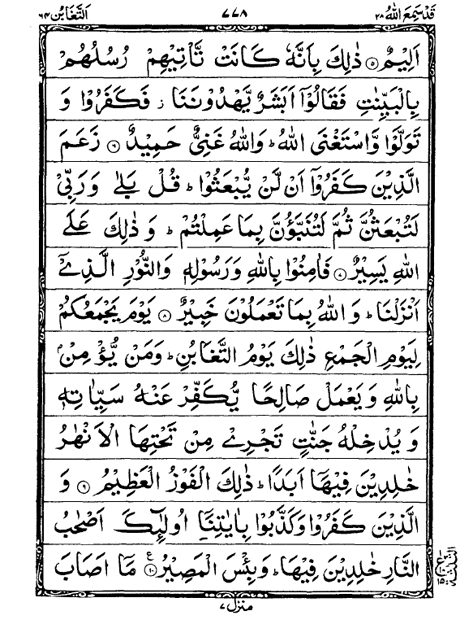 قَدْ سَمِعَ اللهُ ٢٨ ٧٧٨ اَلتَّغَابُن ٦٤
اَلِيْمٌ ۝٥ ذٰلِكَ بِاَنَّهٗ كَانَتْ تَّاْتِيْهِمْ رُسُلُهُمْ
بِالْبَيِّنٰتِ فَقَالُوْٓا اَبَشَرٌ يَّهْدُوْنَنَا ز فَكَفَرُوْا وَ
تَوَلَّوْا وَّاسْتَغْنَى اللهُ ؕ وَاللهُ غَنِىٌّ حَمِيْدٌ ۝٦ زَعَمَ
الَّذِيْنَ كَفَرُوْٓا اَنْ لَّنْ يُّبْعَثُوْا ؕ قُلْ بَلٰى وَرَبِّىْ
لَتُبْعَثُنَّ ثُمَّ لَتُنَبَّؤُنَّ بِمَا عَمِلْتُمْ ؕ وَ ذٰلِكَ عَلَى
اللهِ يَسِيْرٌ ۝٧ فَاٰمِنُوْا بِاللهِ وَرَسُوْلِهٖ وَالنُّوْرِ الَّذِىْٓ
اَنْزَلْنَا ؕ وَ اللهُ بِمَا تَعْمَلُوْنَ خَبِيْرٌ ۝٨ يَوْمَ يَجْمَعُكُمْ
لِيَوْمِ الْجَمْعِ ذٰلِكَ يَوْمُ التَّغَابُنِ ؕ وَمَنْ يُّؤْمِنْۢ
بِاللهِ وَ يَعْمَلْ صَالِحًا يُّكَفِّرْ عَنْهُ سَيِّاٰتِهٖ
وَ يُدْخِلْهُ جَنّٰتٍ تَجْرِىْ مِنْ تَحْتِهَا الْاَنْهٰرُ
خٰلِدِيْنَ فِيْهَآ اَبَدًا ؕ ذٰلِكَ الْفَوْزُ الْعَظِيْمُ ۝٩ وَ
الَّذِيْنَ كَفَرُوْا وَكَذَّبُوْا بِاٰيٰتِنَآ اُولٰٓئِكَ اَصْحٰبُ
النَّارِ خٰلِدِيْنَ فِيْهَا ؕ وَبِئْسَ الْمَصِيْرُ ۝١٠ مَآ اَصَابَ
منزل ٧